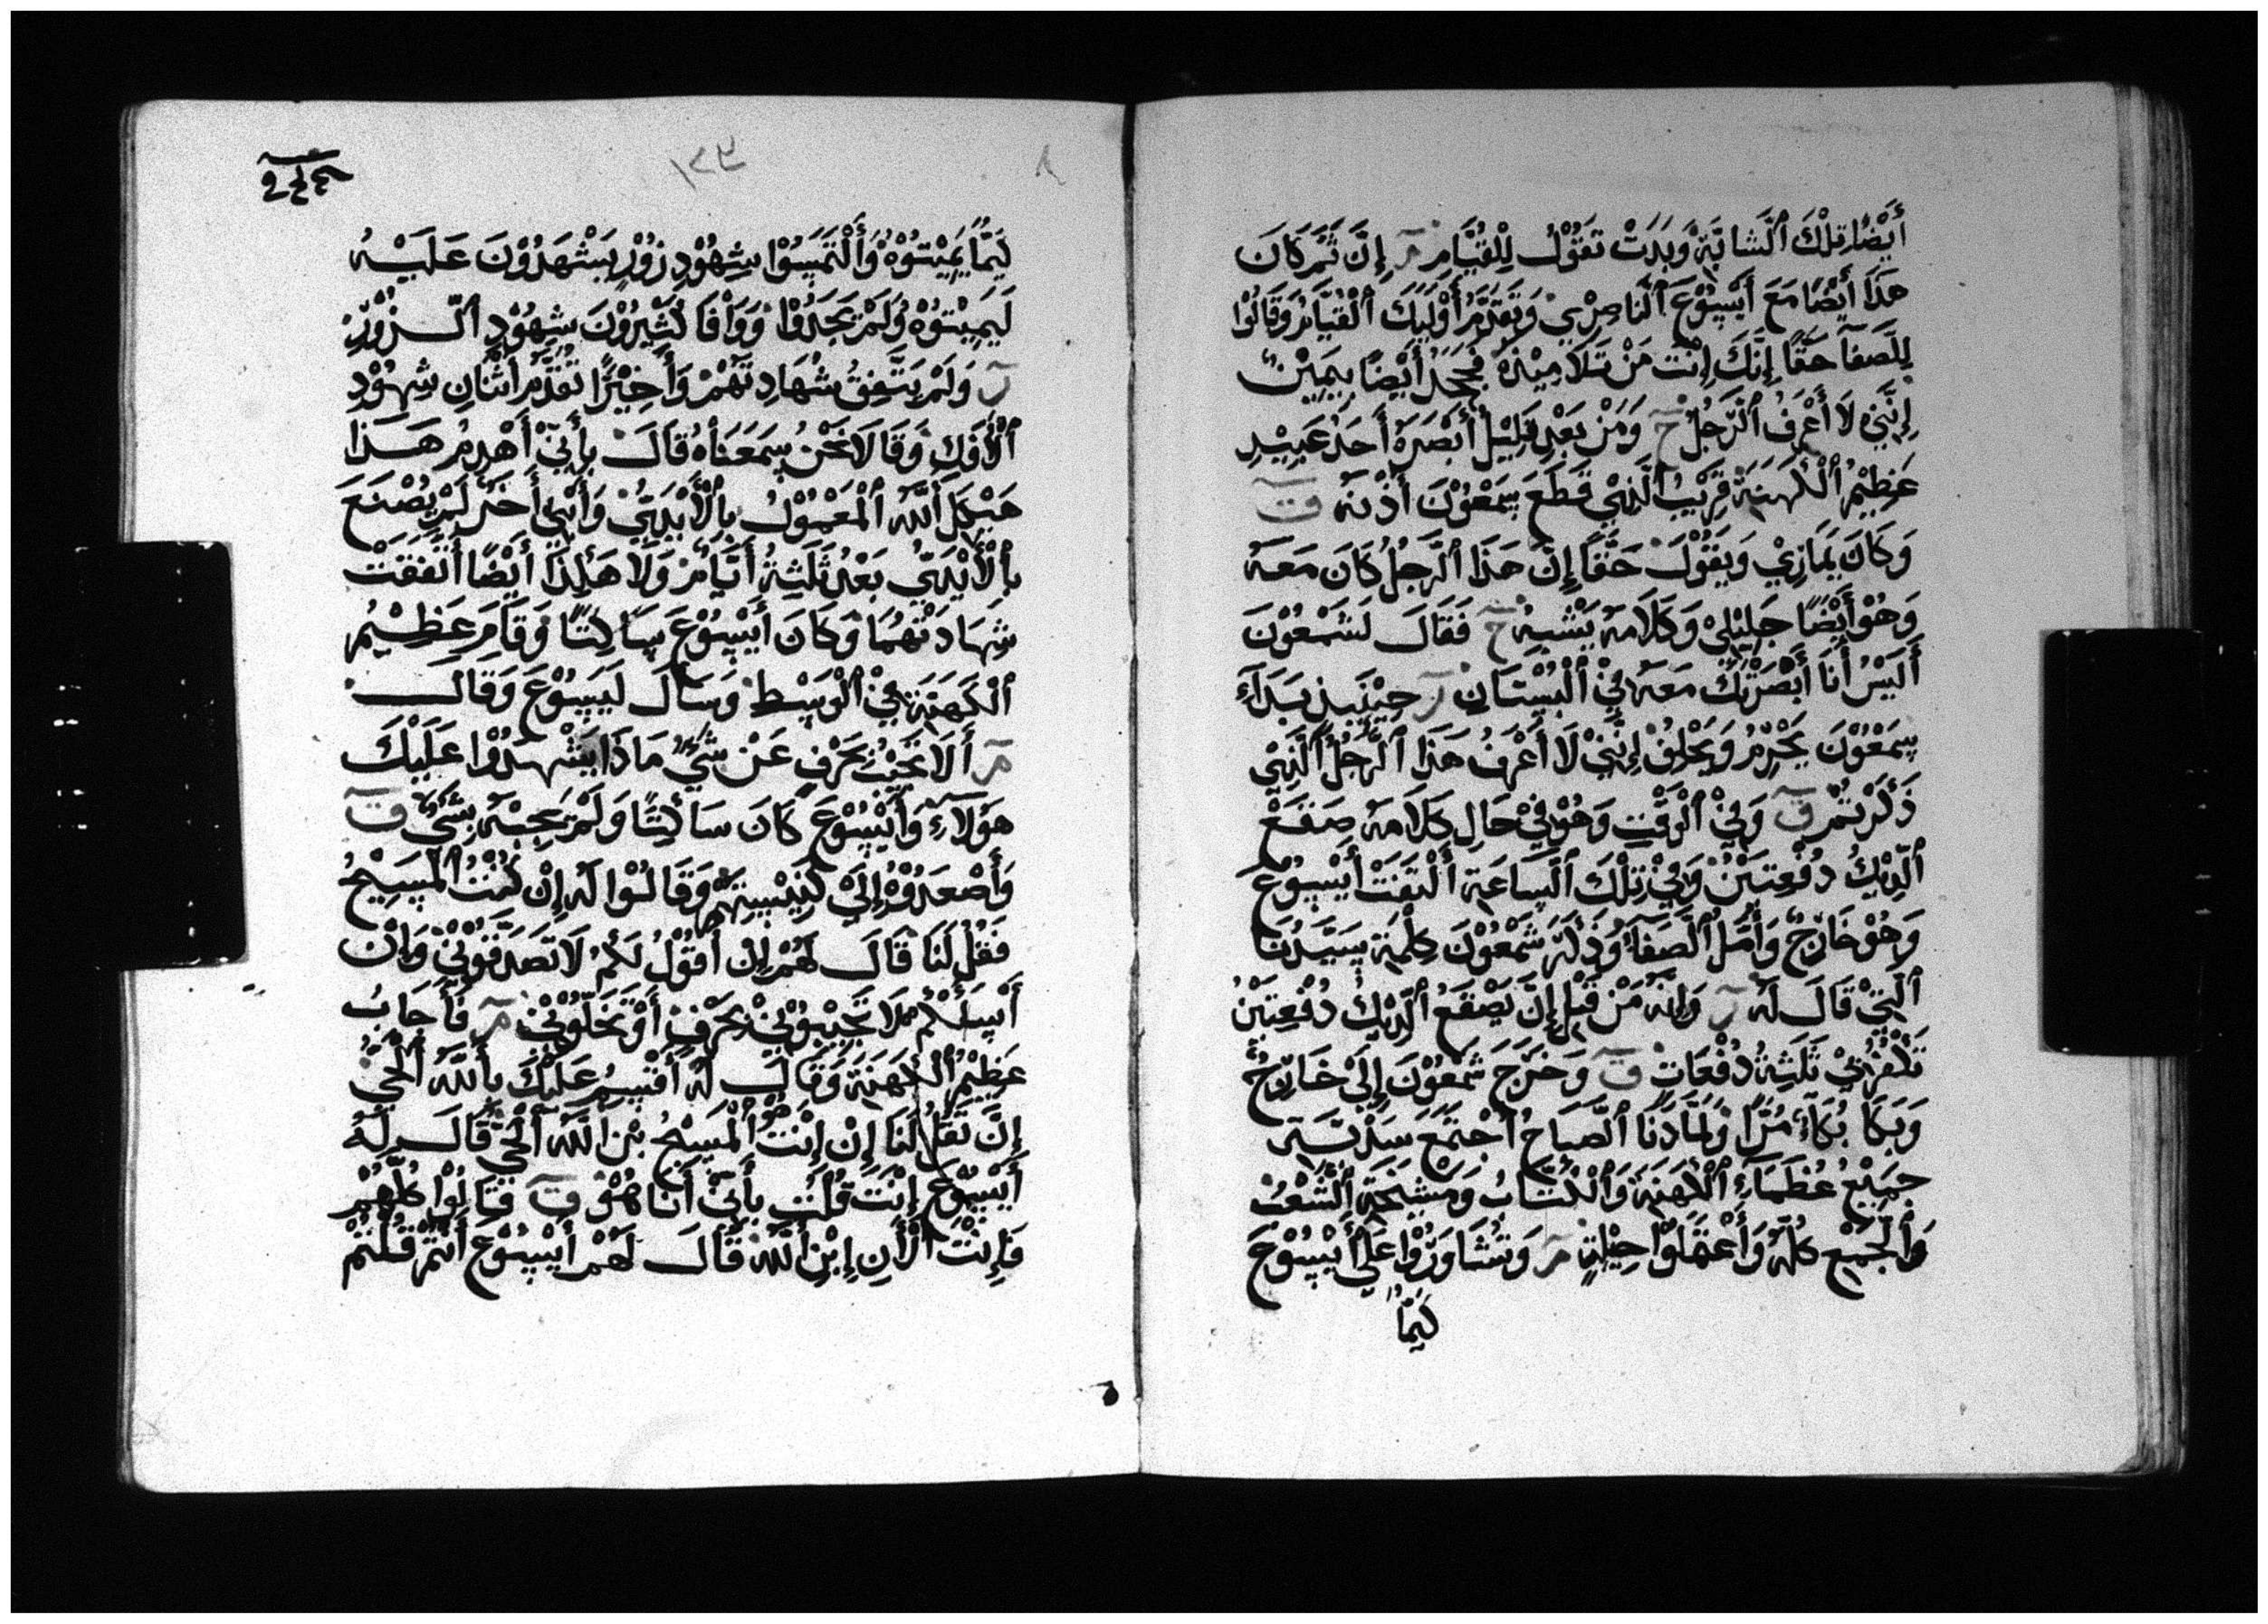 أَيْضًا تِلْكَ ٱلشَّابَّةُ وَبَدَتْ تَقُوْلُ لِلْقُيَّامِ مر إِنَّ ثَمَّ كَانَ
هَذَا أَيْضًا مَعَ أَيْسُوْعَ ٱلنَّاصِرْيِ وَتَقَدَّمُ أُوْلَيِكَ ٱلْقُيَّامُ وَقَالُوْا
لِلصَّفَا حَقًا إِنَّكَ إِنْتَ مَنْ تَلَامِيْذِهِ فَجَحَدَ أَيْضًا بِيَمِيْنٍ
إِنَّنِيْ لَا أَعْرِفُ ٱلرَّجُلُ وَمَنْ بَعْدِ قَلِيْلٍ أَبْصَرَهُ أَحَدُ عَبِيْدِ
عَظِيْمُ ٱلْكَهَنَةِ قَرِيْبُ ٱلَّذِيْ قَطَعَ سِمَعُوْنَ أُذْنَهُ ق
وَكَانَ يُمَارِيْ وَيَقُوْلَ حَقًا إِنَّ هَذَا ٱلرَّجُلُ كَانَ مَعَهُ
وَهُوْ أَيْضًا جَلِيْلِيْ وَكَلَامَهُ يَشْبِهُ فَقَالَ لَشَمْعُوْنَ
أَلَيْسَ أَنَا أَبْصَرْتُكَ مَعَهُ فِيْ ٱلْبُسْتَانِ ر حِيْنَيِذٍ بَدَآءَ
سِمَعُوْنَ يَحْرِمُ وَيَحْلِفُ إِنَّنِيْ لَا أَعْرِفُ هَذَا ٱلرَّجُلُ ٱلَّذِيْ
ذَكَرْتُمْ ق وَفِيْ ٱلْوَقْتِ وَهُوْ فِيْ حَالِ كَلَامَهُ صَقَعَ
ٱلدِّيْكُ دُفْعِتَيْنْ وَفِيْ تِلْكَ ٱلسَّاعَةِ ٱلْتَفَتْ أَيْسُوْعُ
وَهُوْ خَارِجٌ وَأَمَّلَ ٱلصَّفَا وَذَكَرَ شَمْعُوْنَ كِلْمَةِ سَيِّدُنَا
ٱلَتِيْ قَالَ لَهُ ر وَإِنَّهُ مَنْ قَبْلِ إِنَّ يَصْقَعُ ٱلدِّيْكُ دُفْعِتَيْنُ
تَكْفُرُنِيْ ثَلَثِةُ دُفْعَاتٍ ق وَخَرَجَ شَمْعُوْنَ إِلَىْ خَارِجٌ
وَبَكَا بُكَآءُ مُرًّا وَلَمَّا دَنَا ٱلصَّبَاحُ أَجْتَمَعَ
جَمِيْعُ عُظَمَآءِ ٱلْكَهَنَةَ وَٱلْكُتَّابُ وَمَشِيْخَةِ ٱلشَّعْبُ
وَٱلْجَمْعِ كُلُّهُ وَأَعْمَلَوْا حِيْلَةٍ مر وَتَشَاوَرُوْا عَلَيْ أَيْسُوْعَ
كَيْمَا
كَيْمَا يُمِيْتُوْهُ وَأَلْتَمَسُوْا شِهُوْدِ زُوْرٍ يَشْهَدُوْنَ عَلَيْهُ
لَيَمِيْتُوْهُ وَلَمْ يَجِدُوْا وَوَافَا كَثِيْرُوْنَ شِهُوْدِ ٱلزُوْرْ
ر وَلَمْ يَتَّفِقُ شُهَادِتَهُمْ وَأَخِيْرًا تَقَدَّمُ أَثْنَانِ شِهُوْدِ
ٱلْأُفْكِ وَقَالَا نَحْنُ سَمَعْنَاهُ قَالَ بِأَنِّيْ أَهْدِمُ هَذَا
هَيْكَلَ أَللَّهَ ٱلْمَعْمُوْلُ بِٱلْأَيْدِيْ وَأَبْنِيْ أَخَرْ لَمْ يُصْنَعَ
بِٱلْأَيْدِيْ بَعْدُ ثَلَثِةُ أَيَّامْ وَلَا هَكِذَا أَيْضًا أَتْفَقَتْ
شِهَادَتْهُمَا وَكَانَ أَيْسُوْعَ سَاكِتًا وَقَامَ عَظِيْمُ
ٱلْكَهَنَةِ فِيْ ٱلْوَسِطْ وَسَأَلَ لَيَسُوْعَ وَقَالَ
مر أَلَا تَجِيْبُ بِحَرْفٍ عَنْ شَيْءٍ مَاذَا يَشْهَدُوْا عَلَيْكَ
هَوُلَآءِ وَأَيْسُوْعَ كَانَ سَاكِتًا وَلَمْ يَجِبْهُ بِشَيْءٍ ق
وَأَصْعَدُوْهُ إِلَيْ كَنِيْسِتِهِمْ وَقَالُوْا لَهُ إِنْ كُنْتْ ٱلْمَسِيْحُ
فَقُلْ لَنَا قَالَ لَهُمْ إِنْ أَقُوْلُ لَكُمْ لَا تَصَدِّقُوْنِيْ وَإِنْ
أَسِئَلْكُمْ لَا تَجِيْبُوْنِيْ بِحَرْفٍ أَوْ تَخَلُّوْنِيْ مر فَأَجَابُ
عَظِيْمُ ٱلْكَهَنَةِ وَقَالَ لَهُ أُقْسِمُ عَلَيْكَ بِأَللَّهِ ٱلْحَيْ
إِنَّ تَقُلْ لَنَا إِنْ إِنْتْ هُوْ ٱلْمَسِيْحُ بْنِ ٱللَّهِ ٱلْحَيْ قَالَ لَهُ
أَيْسُوْعَ إِنْتَ قُلْتْ بِأَنِّيْ أَنَا هُوْ ق فَقَالُوْا كُلُّهُمْ
فَإِنْتْ ٱلْأَنِ إِبْنِ ٱللَّهِ قَالَ لَهُمْ أَيْسُوْعَ أَنْتُمْ قُلْتُمْ